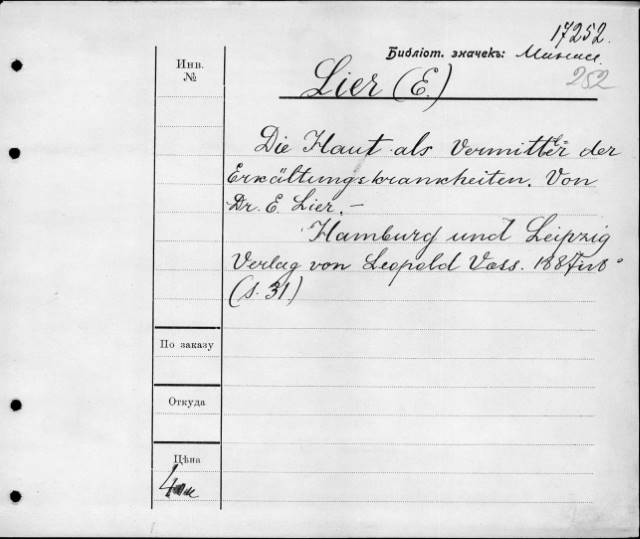 17252.
Инв.
№
Библіот. значекъ:
252
Lier (E.)
Die Haut als Vermittler der
Erkältungskrankheiten. Von
Dr. E. Lier.—
Hamburg und Leipzig
Verlag von Leopold Voss.
(S. 31.)
По заказу
Откуда
Цѣна